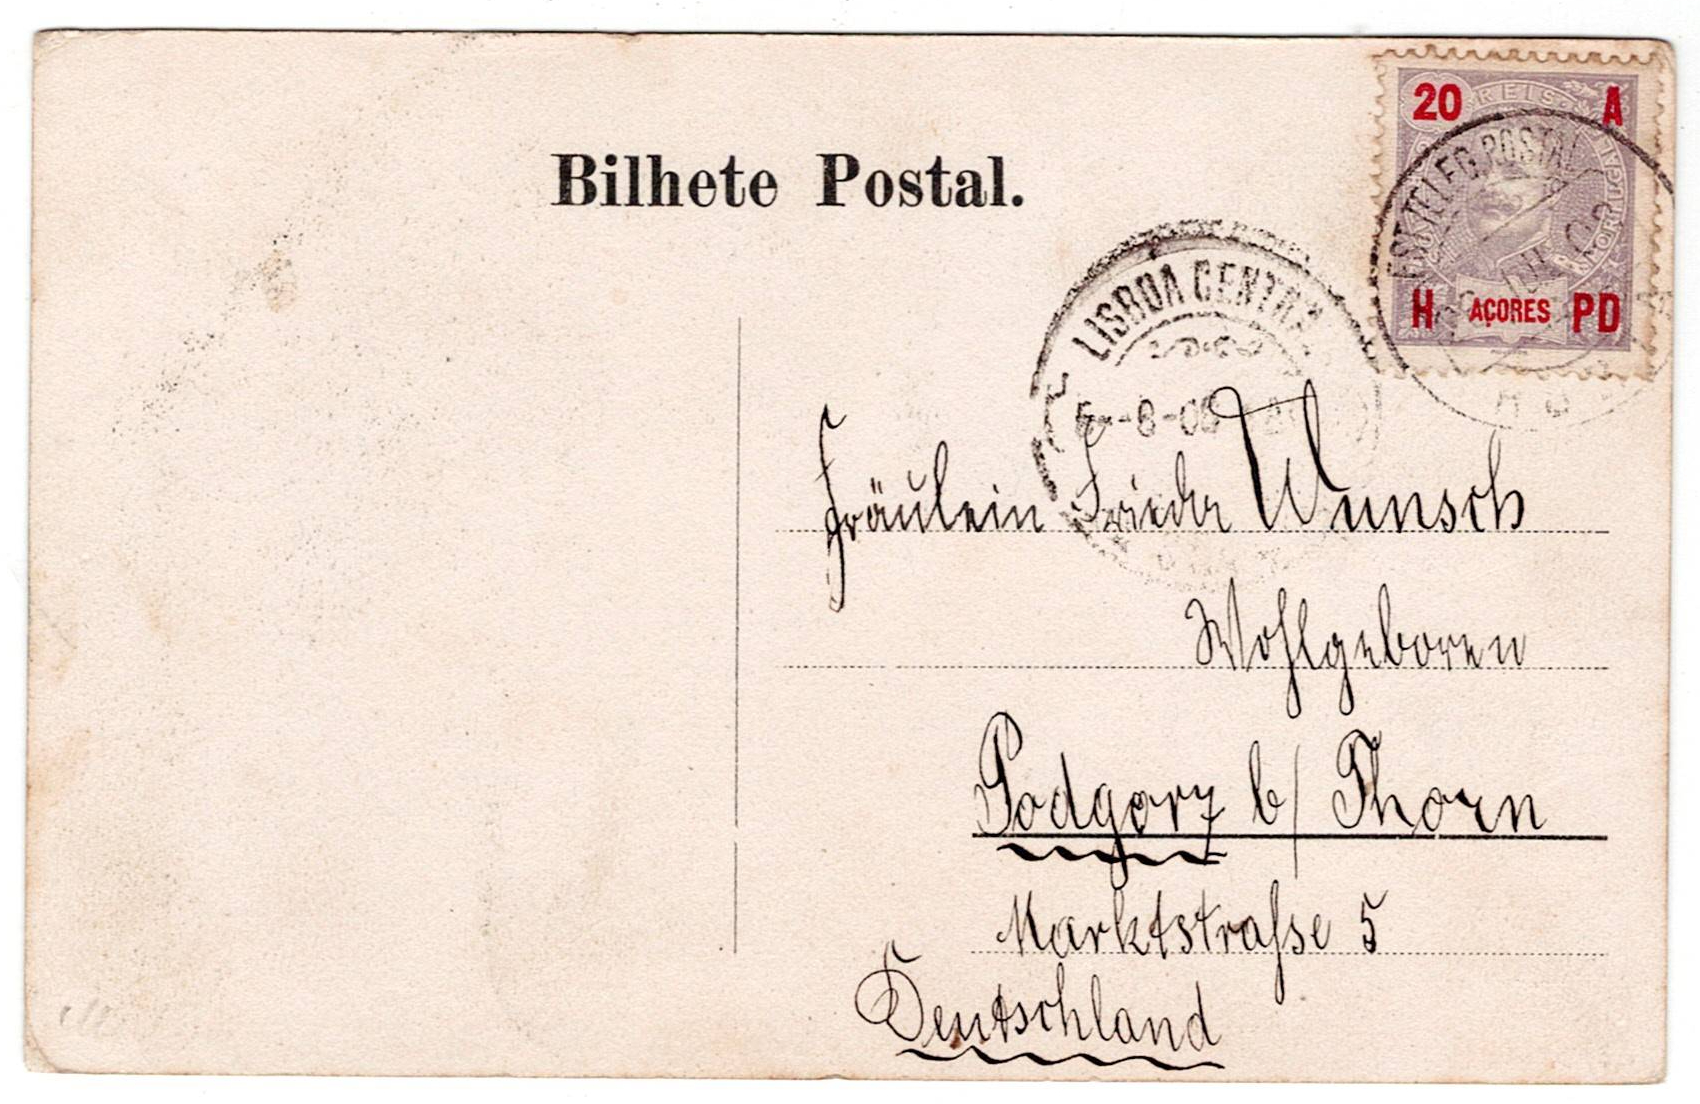 Bilhete Postal.
20 REIS A
H AÇORES PD
EST. TELEG. POSTAL
LISBOA CENTRAL
-8-05
Fräulein Frieda Wunsch
Wohlgeboren
Podgorz b/ Thorn
Marktstraſse 5
Deutschland